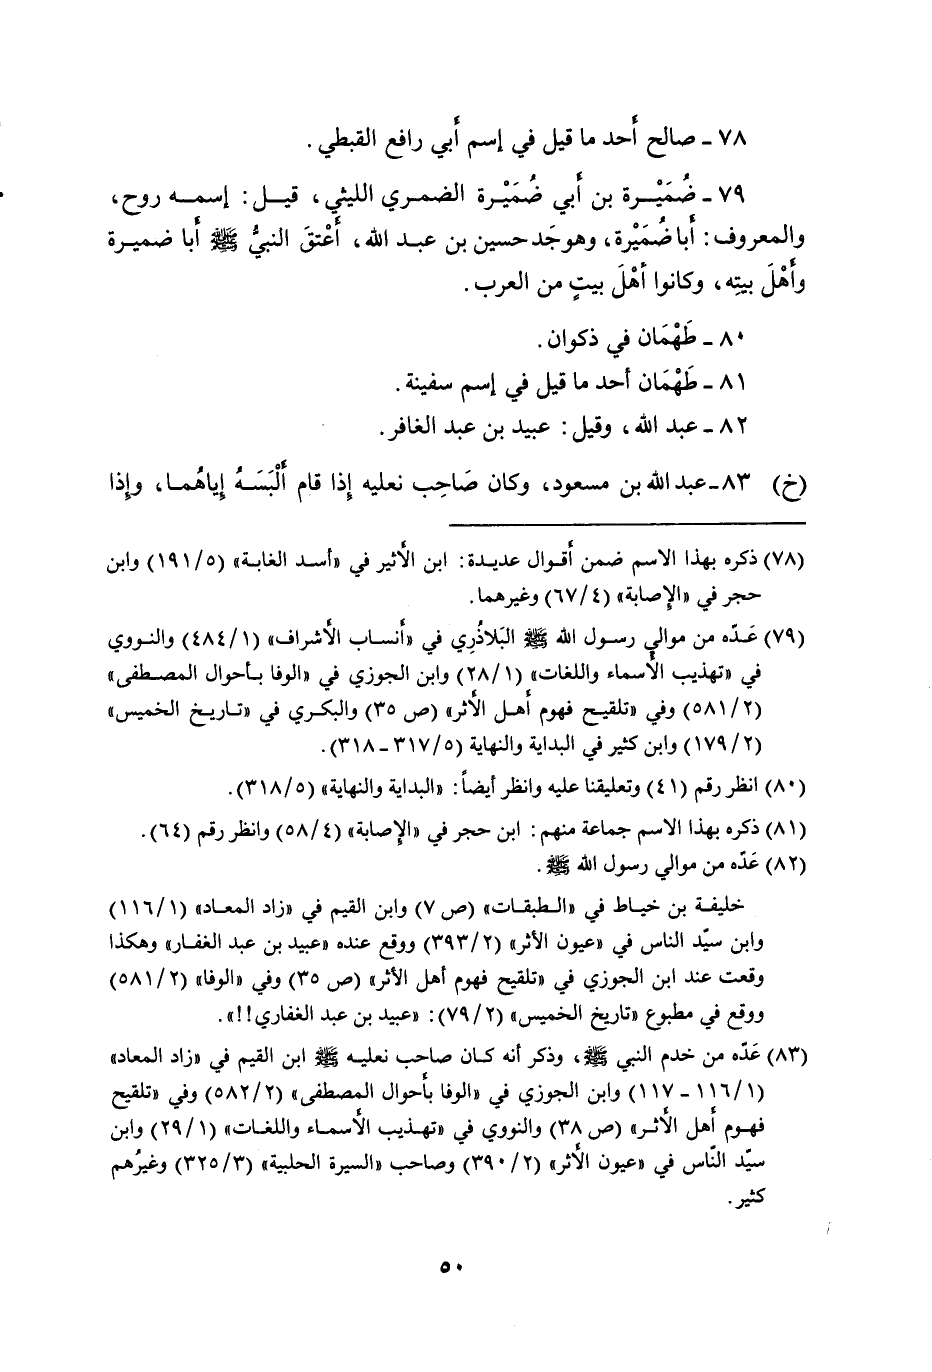 ٧٨ ـ صالح أَحد ما قيل في إسم أَبي رافع القبطي .
٧٩ ـ ضُمَيْـرة بن أَبي ضُمَيْـرة الضمـري الليثي ، قيـل : إسمـه روح ،
والمعروف : أَبا ضُمَيْرة ، وهو جَد حسين بن عبـد الله ، أَعْتقَ النبيُّ ﷺ أَبا ضميـرة
وأَهْلَ بيتِه ، وكانوا أَهْلَ بيتٍ من العرب .
٨٠ ـ طَهْمَان في ذكوان .
٨١ ـ طَهْمَان أحد ما قيل في إسم سفينة .
٨٢ ـ عبد الله ، وقيل : عبيد بن عبد الغافر .
(خ) ٨٣ ـ عبد الله بن مسعود ، وكان صَاحِب نعليه إِذا قام أَلْبَسَـهُ إِياهُمـا ، وإِذا
(٧٨) ذكره بهذا الاسم ضمن أَقـوال عديـدة : ابن الأَثير في «أسـد الغابـة» (١٩١/٥) وابن
حجر في «الإصابة» (٦٧/٤) وغيرهما .
(٧٩) عَـدّه من موالي رسـول الله ﷺ البَلاذُرِي في «أَنساب الأَشراف» (٤٨٤/١) والنـووي
في «تهذيب الأَسماء واللغات» (٢٨/١) وابن الجوزي في «الوفا بـأحوال المصـطفى»
(٥٨١/٢) وفي «تلقيـح فهوم أَهـل الأَثر» (ص ٣٥) والبكـري في «تـاريـخ الخميس»
(١٧٩/٢) وابن كثير في البداية والنهاية (٣١٧/٥ ـ ٣١٨) .
(٨٠) انظر رقم (٤١) وتعليقنا عليه وانظر أيضاً : «البداية والنهاية» (٣١٨/٥) .
(٨١) ذكره بهذا الاسم جماعة منهم : ابن حجر في «الإصابة» (٥٨/٤) وانظر رقم (٦٤) .
(٨٢) عَدّه من موالي رسول الله ﷺ .
خليفـة بن خيـاط في «الـطبقـات» (ص ٧) وابن القيم في «زاد المعـاد» (١١٦/١)
وابن سيّد الناس في «عيون الأثر» (٣٩٣/٢) ووقع عنده «عبيد بن عبد الغفـار» وهكذا
وقعت عند ابن الجوزي في «تلقيح فهوم أهل الأثر» (ص ٣٥) وفي «الوفا» (٥٨١/٢)
ووقع في مطبوع «تاريخ الخميس» (٧٩/٢) : «عبيد بن عبد الغفاري!!» .
(٨٣) عَدّه من خدم النبي ﷺ ، وذكر أنه كـان صاحب نعليـه ﷺ ابن القيم في «زاد المعاد»
(١١٦/١ ـ ١١٧) وابن الجوزي في «الوفا بأحوال المصطفى» (٥٨٢/٢) وفي «تلقيح
فهـوم أهل الأثـر» (ص ٣٨) والنووي في «تهـذيب الأسمـاء واللغات» (٢٩/١) وابن
سيّد النّاس في «عيون الأثر» (٣٩٠/٢) وصاحب «السيرة الحلبية» (٣٢٥/٣) وغيرُهم
كثير .
٥٠